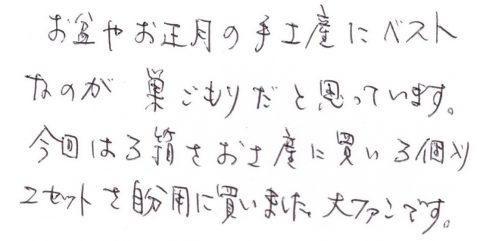 お盆やお正月の手土産にベスト
なのが巣ごもりだと思っています。
今回は3箱をお土産に買い3個入り
2セットを自分用に買いました。大ファンです。